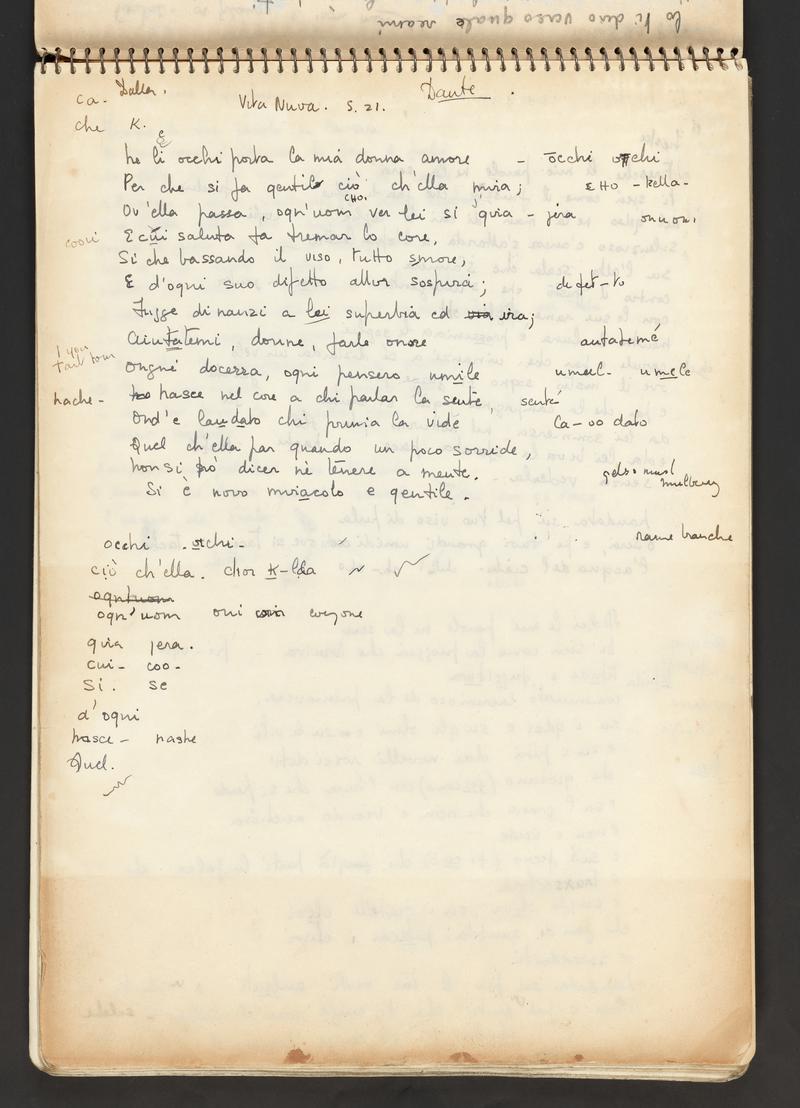 ca. Daller. Dante.
Vita Nuva. S. 21.
che K.
E
ne li occhi porta la mia donna amore - occhi occhi
Per che si fa gentile ciò ch'ella mira; EHO - kella-
CHO.
Ov'ella passa, ogn'uom ver lei si gira - jira onuon.
cooui E cui saluta fa tremar lo core,
Si che bassando il viso, tutto smore,
E d'ogni suo difetto allor sospira; difet-to
Fugge dinanzi a lei superbia ed ira;
Aiutatemi, donne, farle onore autatemé
I you
tait tom
Ongne docezza, ogni pensero umile umeel- umele
nache - nasce nel core a chi parlar la sente, senté
Ond'e laudato chi prima la vide La-oo dato
Quel ch'ella par quando un poco sorride,
non si pò dicer nè tenere a mente.
gelso must mulberry
Si è novo miracolo e gentile.
rame branche
occhi - occhi -
ciò ch'ella. chor K-lla
ogn'uom
ogn'uom oni everyone
gira jera.
cui- coo-
Si. se
d'ogni
nasce - nashe
Quel.